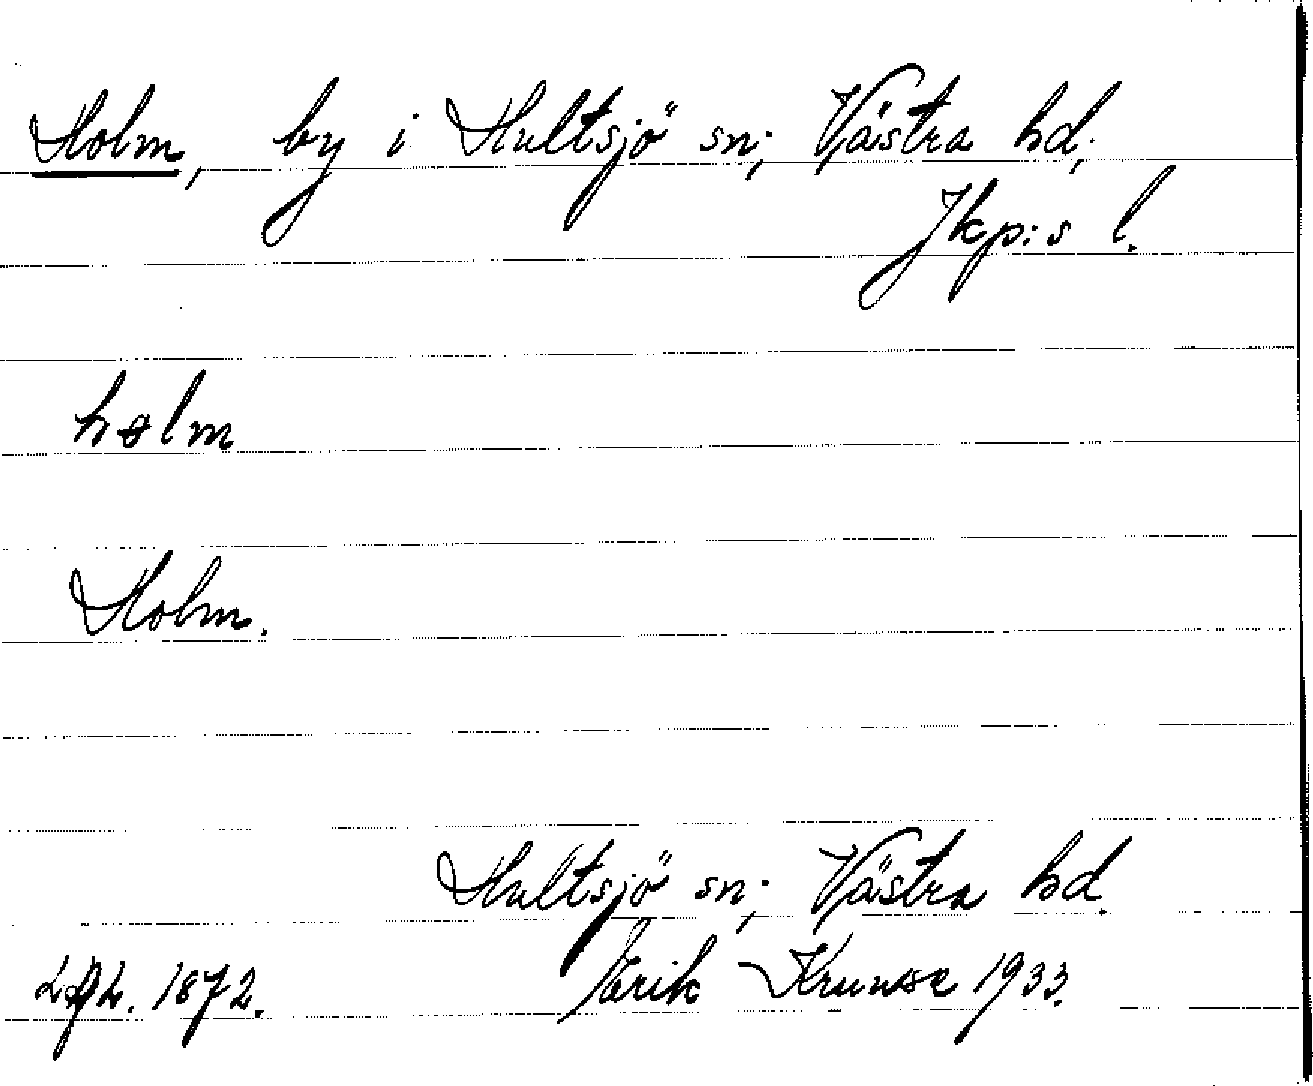 Holm, by i Hultsjö sn; Västra hd;
Jkp:s l.
hɵlm
Holm.
Hultsjö sn; Västra hd.
1872. Erik 1933.